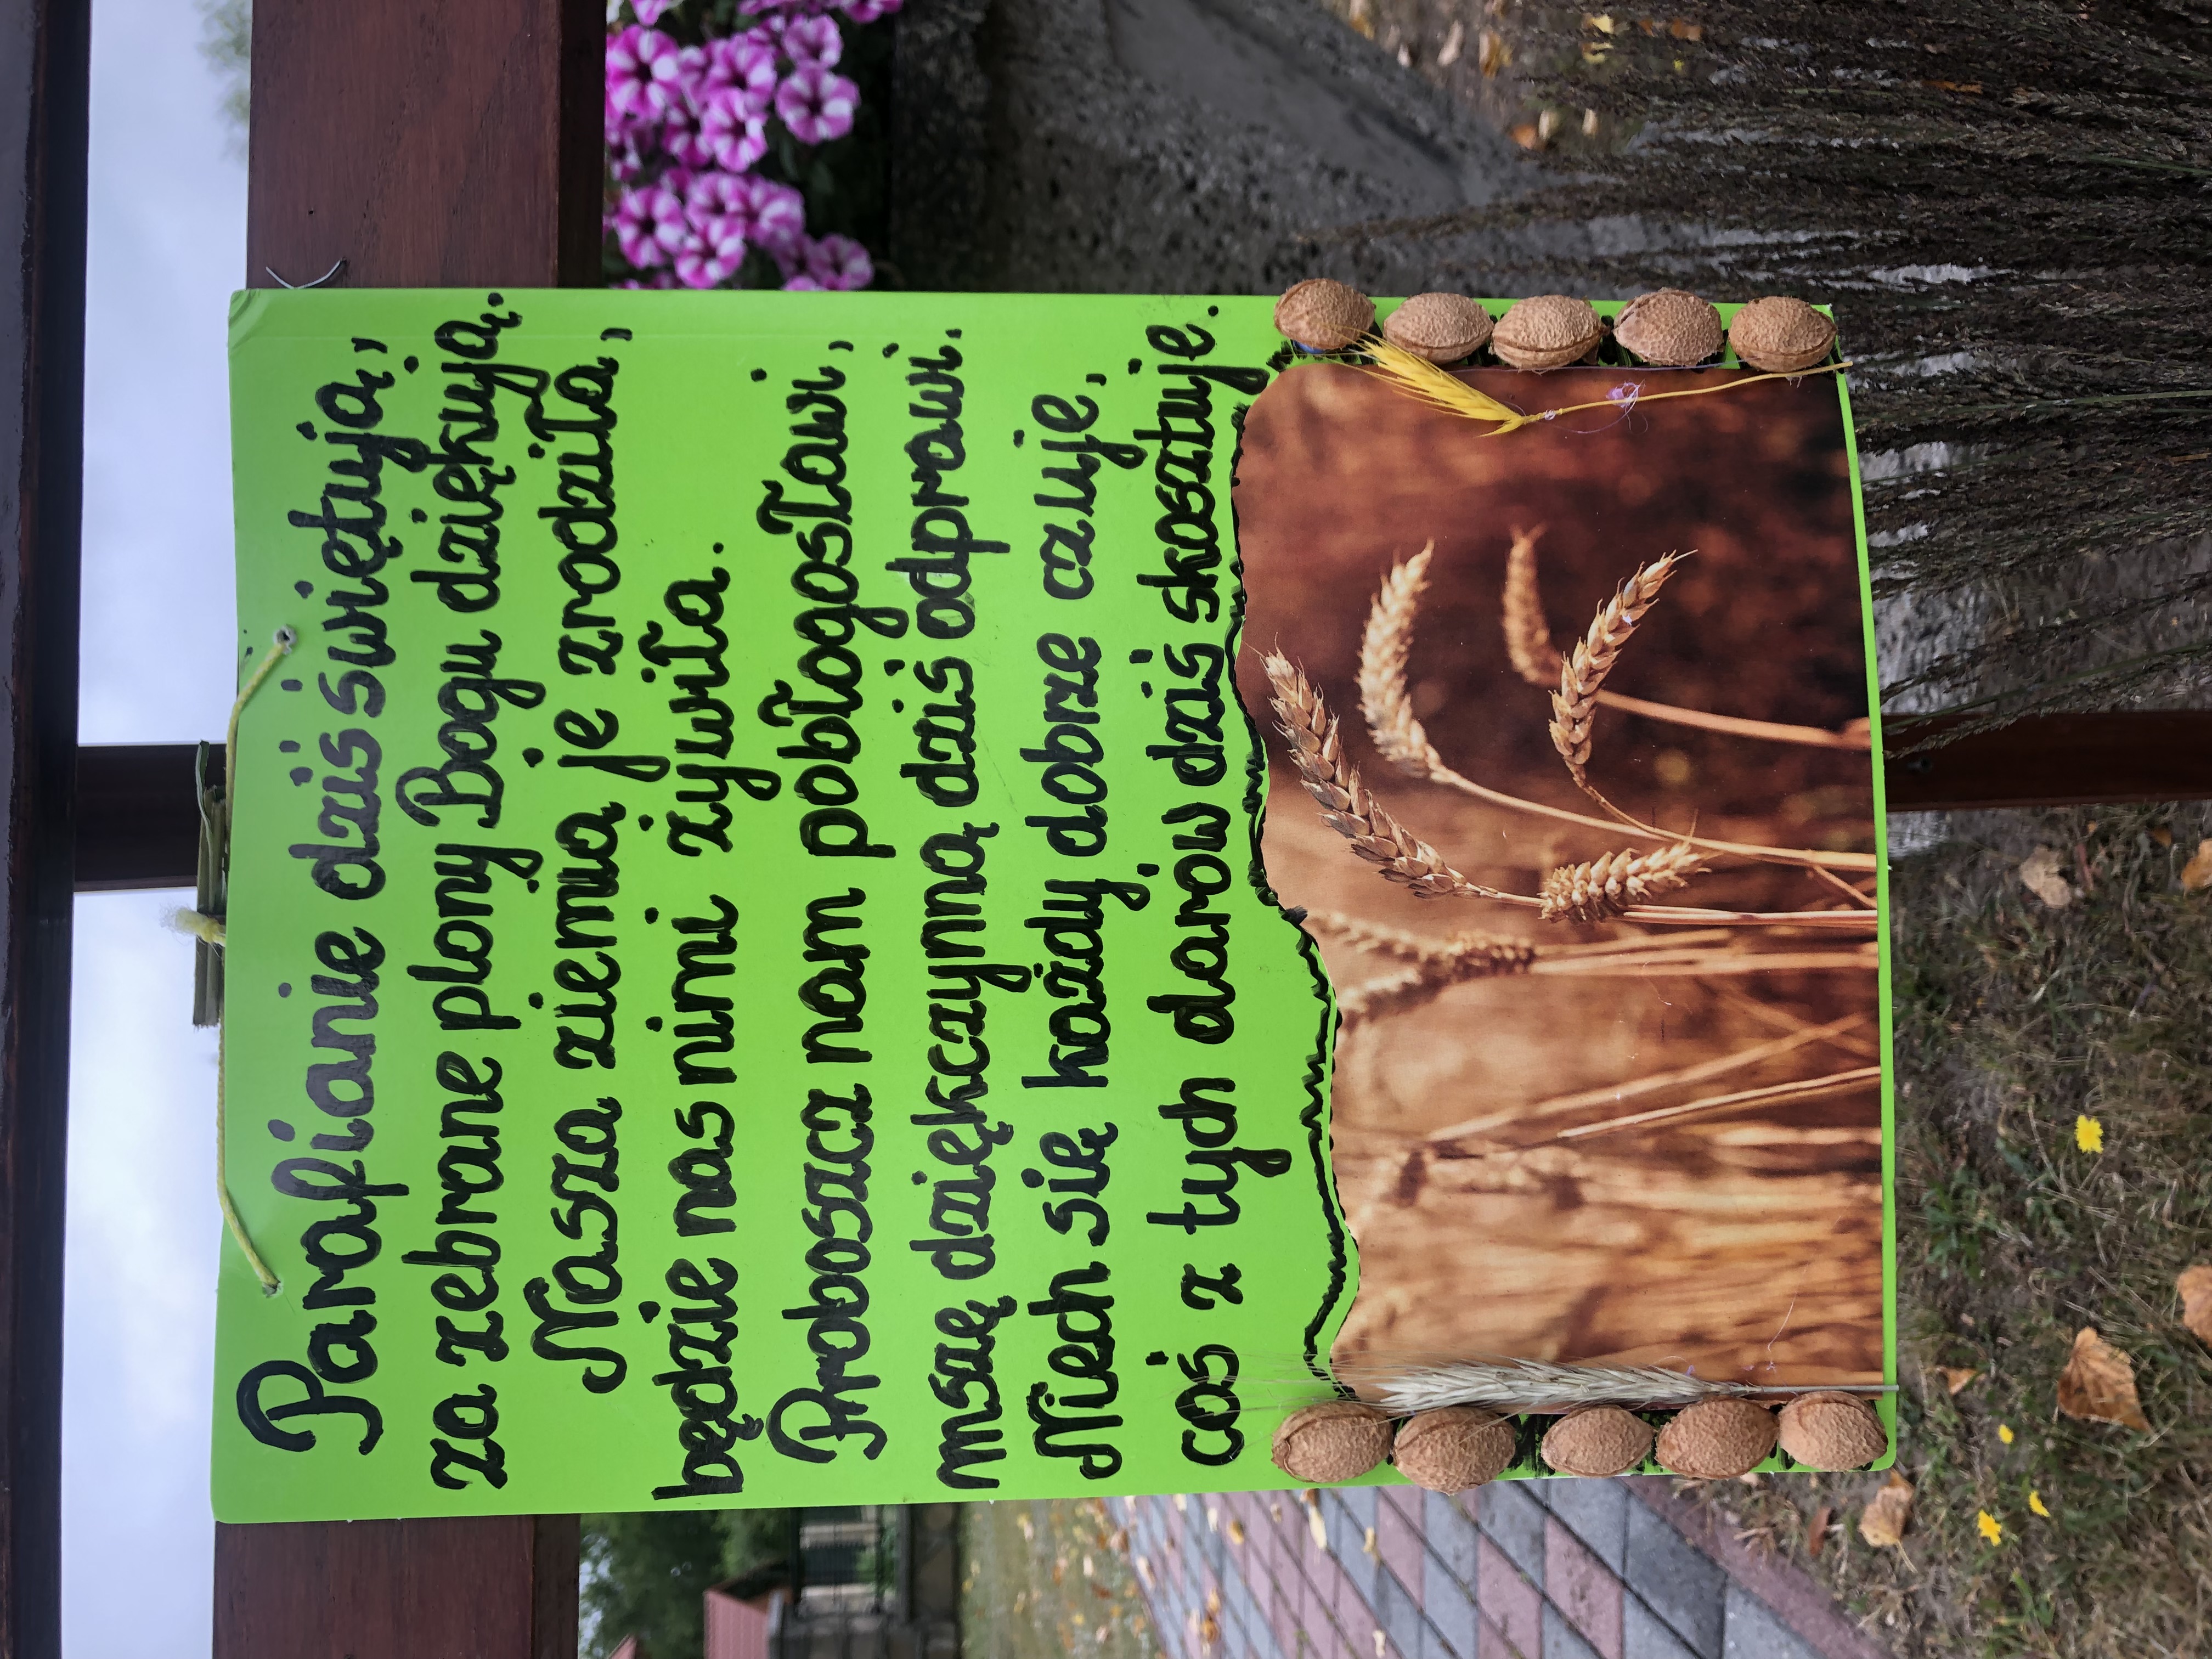 Parafianie dziś świętują,
za zebrane plony Bogu dziękują.
Nasza ziemia je zrodziła,
będzie nas nimi żywiła.
Proboszcz nam pobłogosławi,
mszę dziękczynną dziś odprawi.
Niech się każdy dobrze czuje,
coś z tych darów dziś skosztuje.